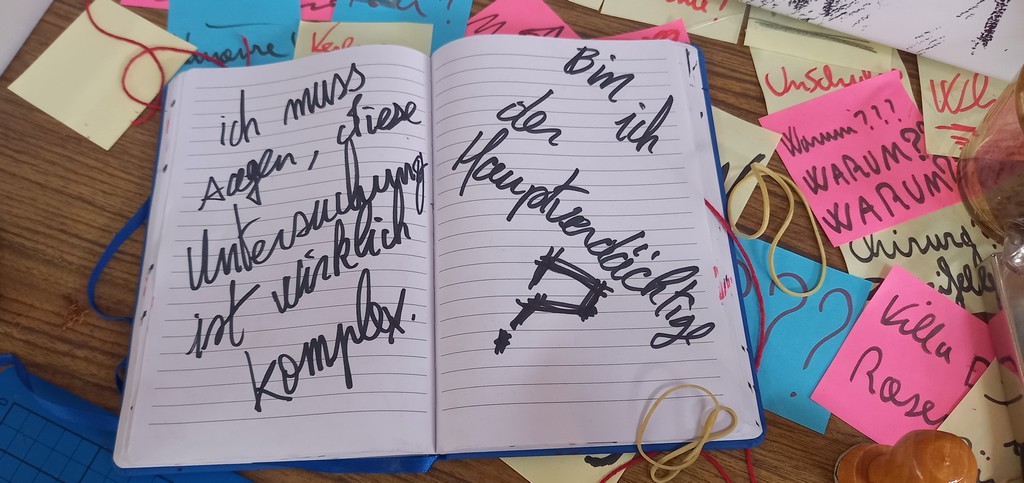 ich muss
sagen, diese
Untersuchung
ist wirklich
komplex.
Bin ich
der
Hauptverdächtige
?
Warum???
WARUM??
WARUM?
??
Villa
Rose